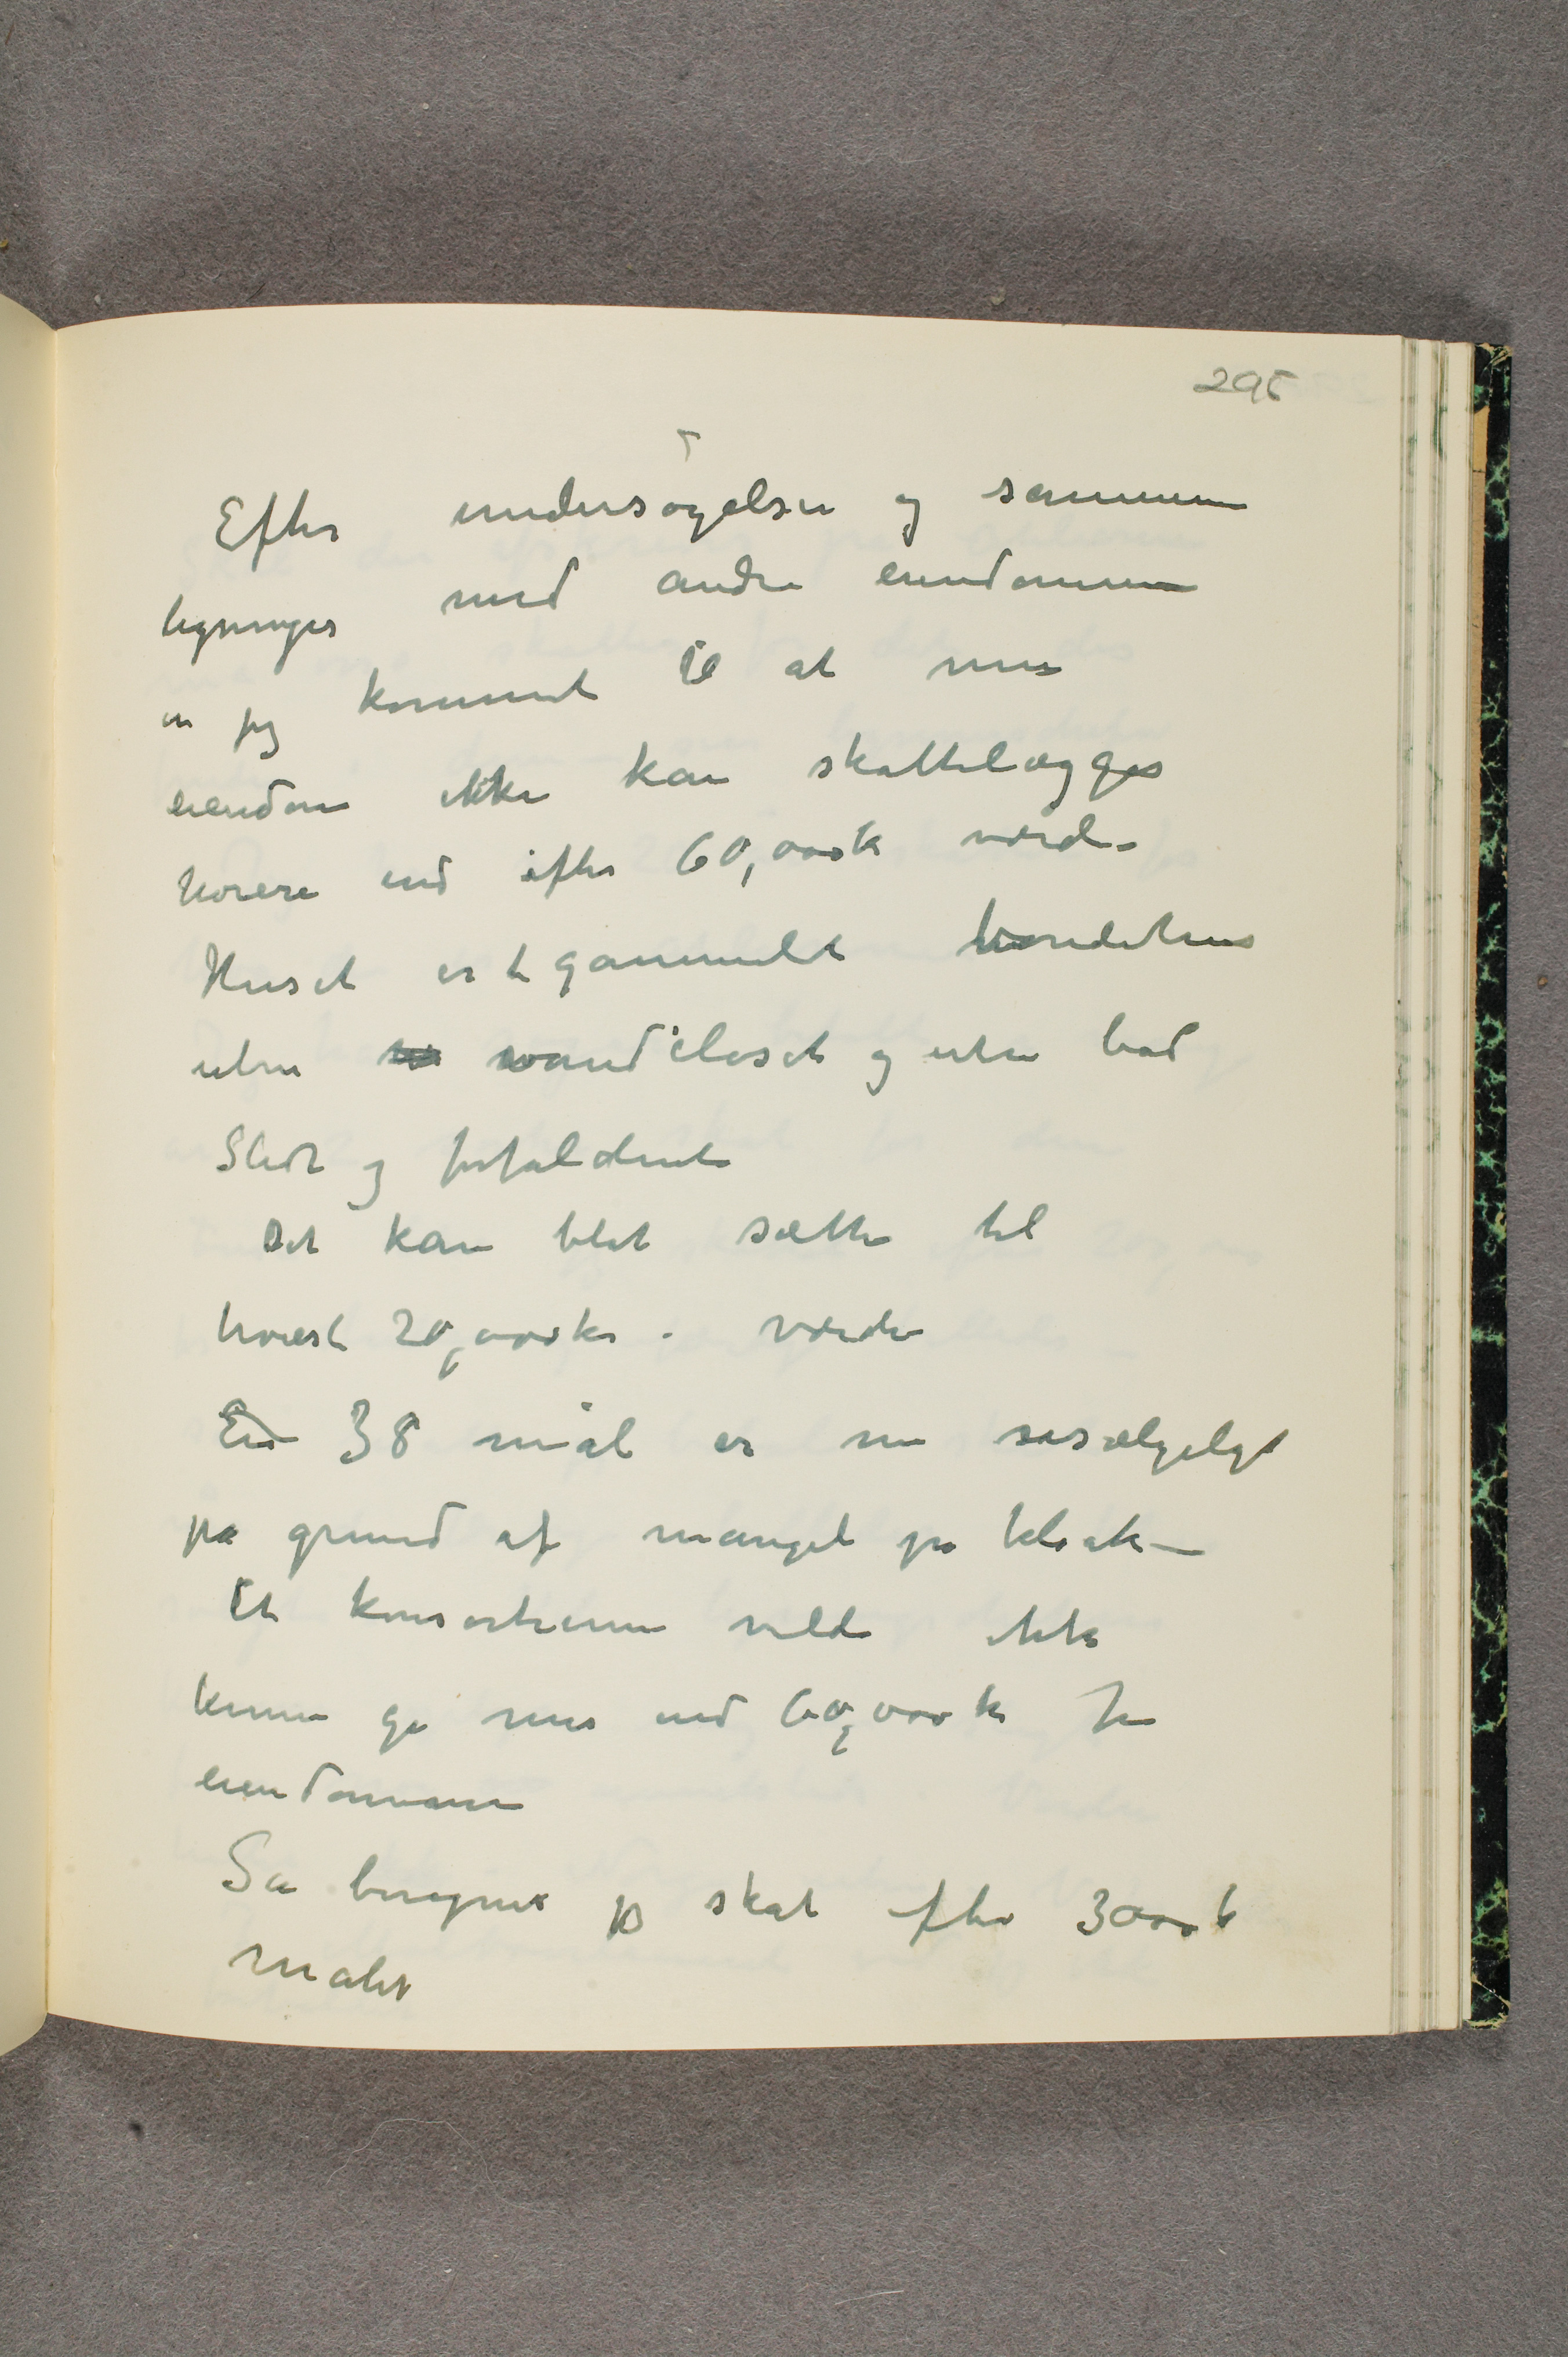 295
Efter undersøgelser og sammen
ligninger med andre eiendomme
er jeg kommet til at min
eiendom ikke kan skattelægges
høiere end efter 60,000 k værdi –
Huset er et gammelt bondehus
uten vandcloset og uten bad
Slidt og forfaldent
Det kan blot sættes til
høiest 20,000 kr. værdi
En 38 mål er nu usælgeligt
på grund af mangel på kloak –
Et konsortium vilde ikke
kunne gi mer end 60,000 kr for
eiendommen
Så beregnes jeg skat efter 3000 k
målet